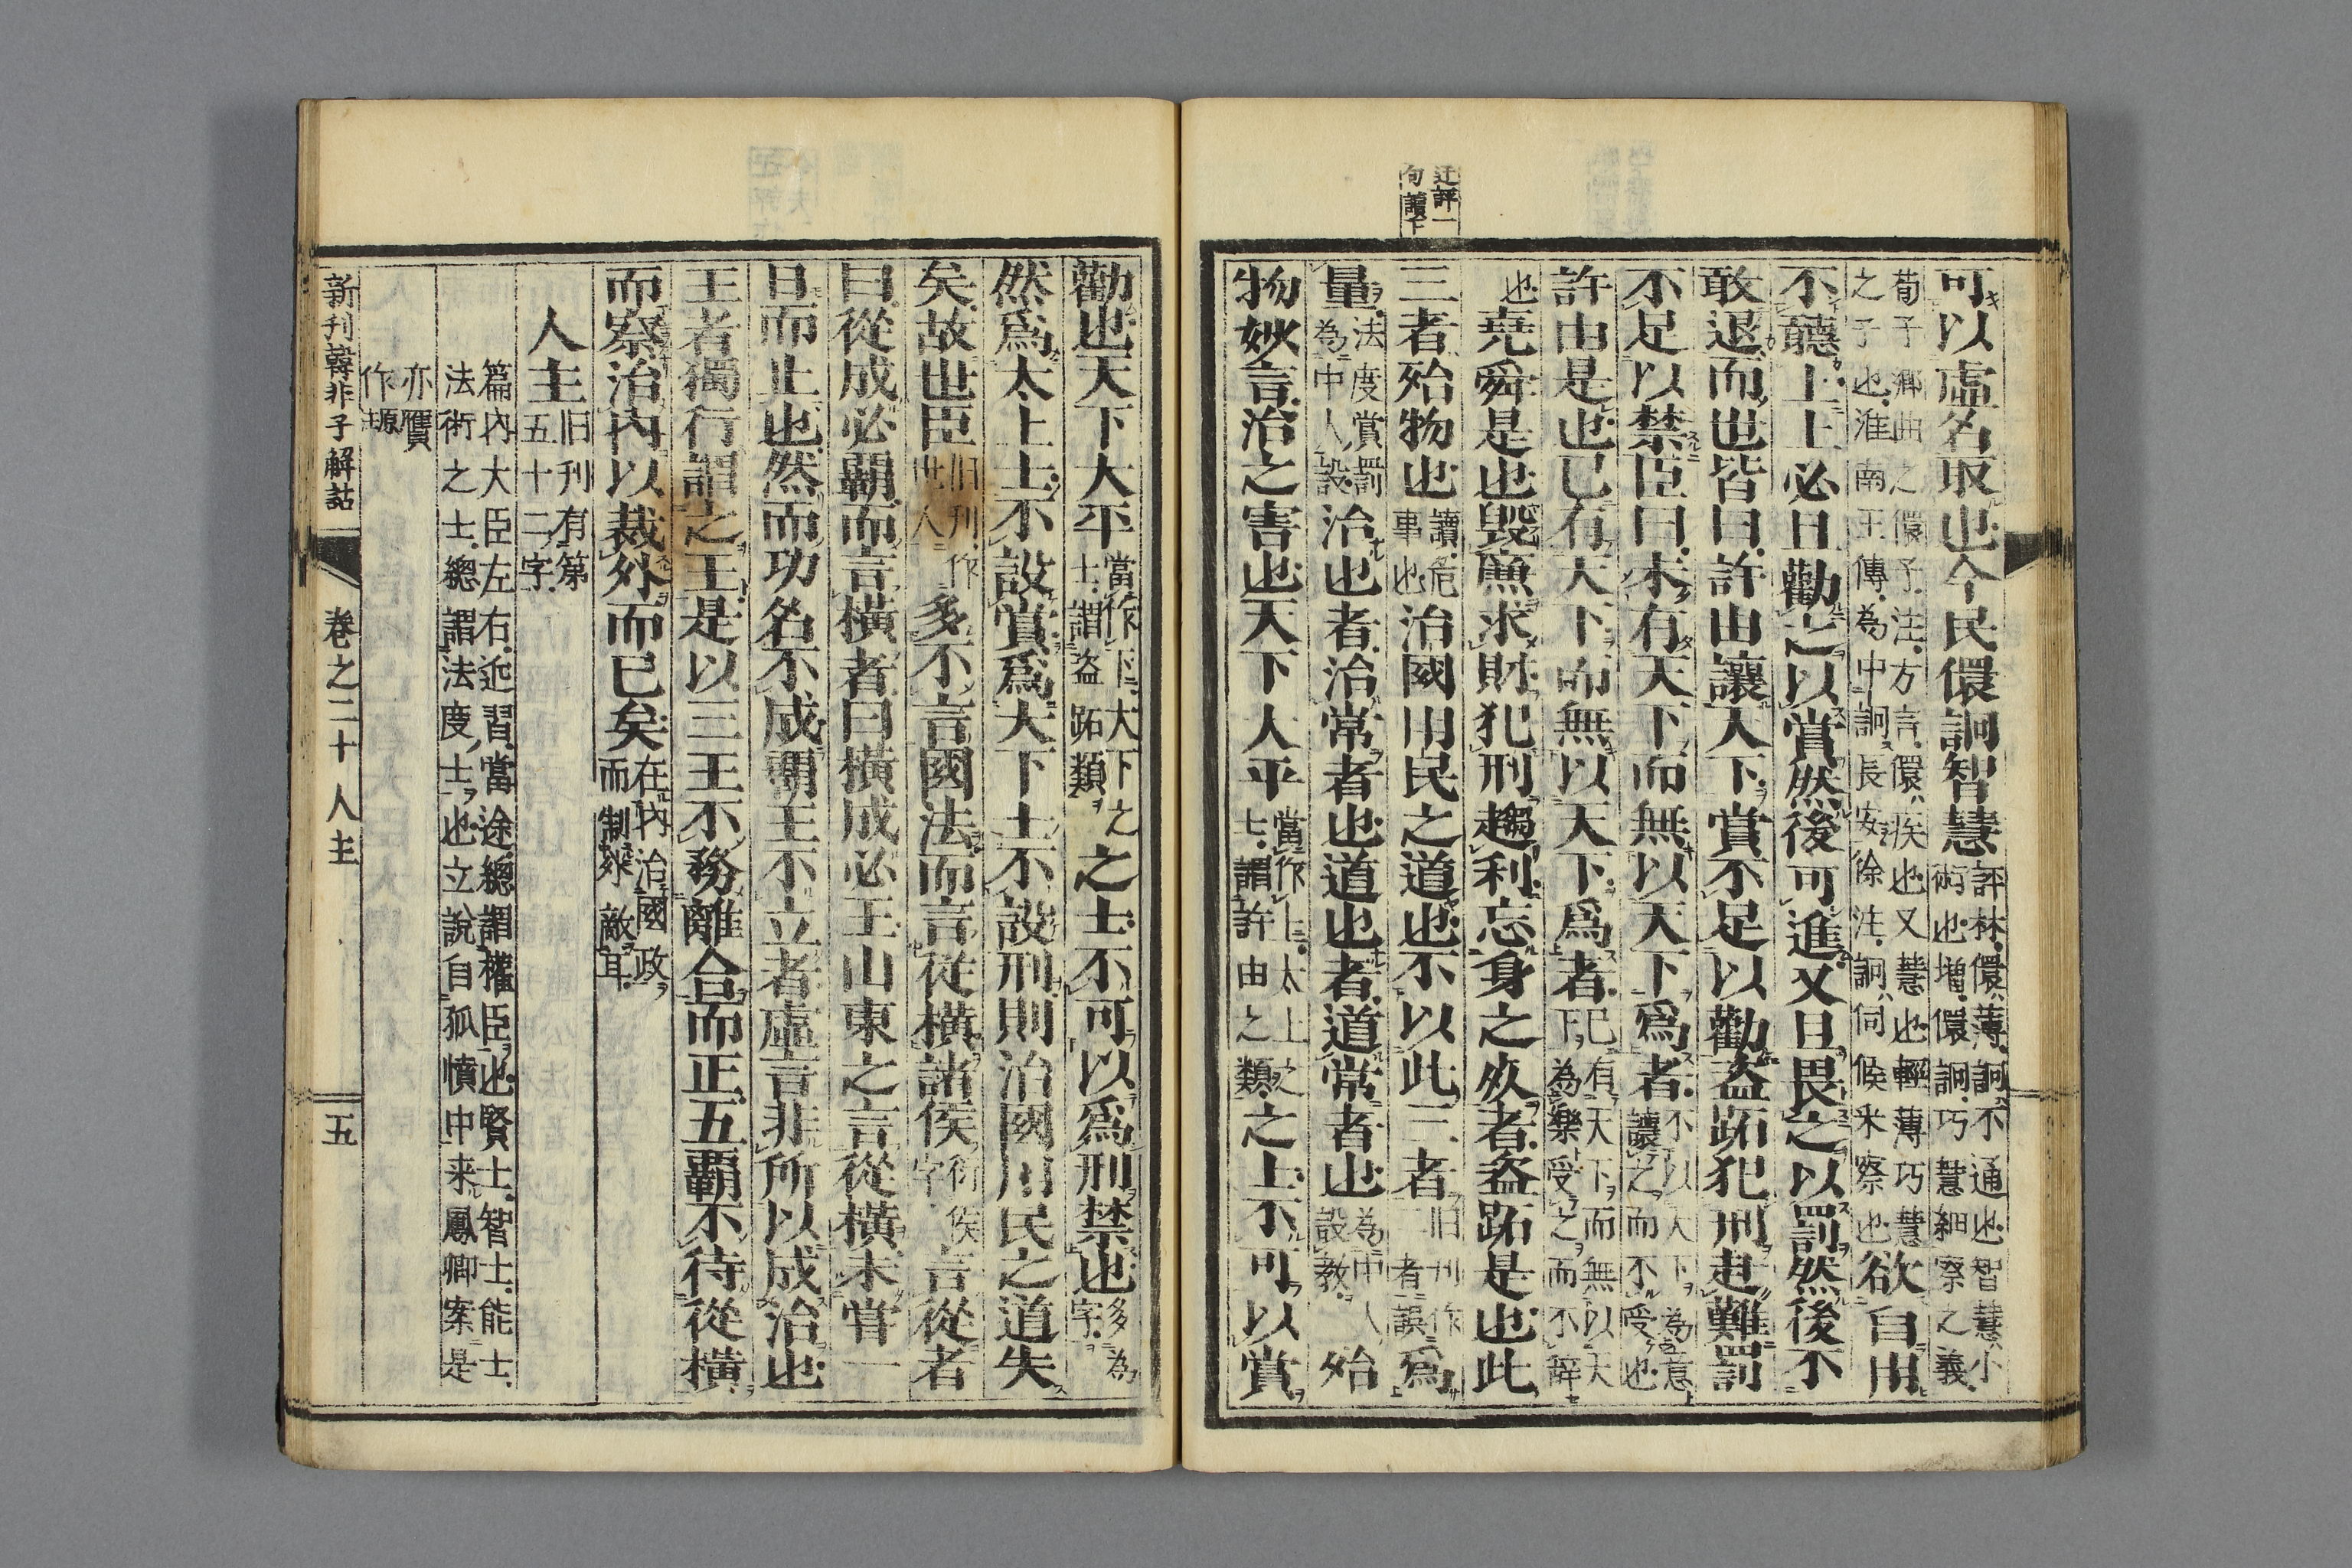 迂評一
句讀下
可以虛名取也今民儇詗智慧評林儇薄詗不通也智慧小術也増儇詗巧慧細察之義
荀子鄉曲之儇子注方言儇疾也又慧也輕薄巧慧之子也淮南王傳為中詗長安徐注詗伺候采察也欲自用
不聽上上必且勸之以賞然後可進又且畏之以罰然後不
敢退而世皆曰許由讓天下賞不足以勸盜跖犯刑赴難罰
不足以禁臣曰未有天下而無以天下爲者不以天下為意讓之而不受也
許由是也已有天下而無以天下爲者已有天下而無以天下為樂受之而不辭
也堯舜是也毀廉求財犯刑趨利忘身之死者盜跖是也此
三者殆物也讀危事也治國用民之道也不以此二者旧刊作二者誤爲
量法度賞罰為中人設治也者治常者也道也者道常者也為中人設教殆
物妙言治之害也天下大平當作上太上之士謂許由之類之士不可以賞
勸也天下大平當作下大下之士謂盜跖類之士不可以爲刑禁也多為字
然爲太上士不設賞爲大下士不設刑則治國用民之道失
矣故世臣旧刊作世人多不言國法而言從橫諸侯衍侯字言從者
曰從成必霸而言橫者曰橫成必王山東之言從橫未嘗一
日而止也然而功名不成霸王不立者虛言非所以成治也
王者獨行謂之王是以三王不務離合而正五霸不待從橫
而察治內以裁外而已矣在內治國政而制裂敵耳
人主旧刊有第五十二字
篇內大臣左右近習當途總謂權臣也賢士智士能士
法術之士總謂法度士也立說自孤憤中来鳳卿案是
亦贋
作
新刊韓非子解詁
卷之二十 人主
五